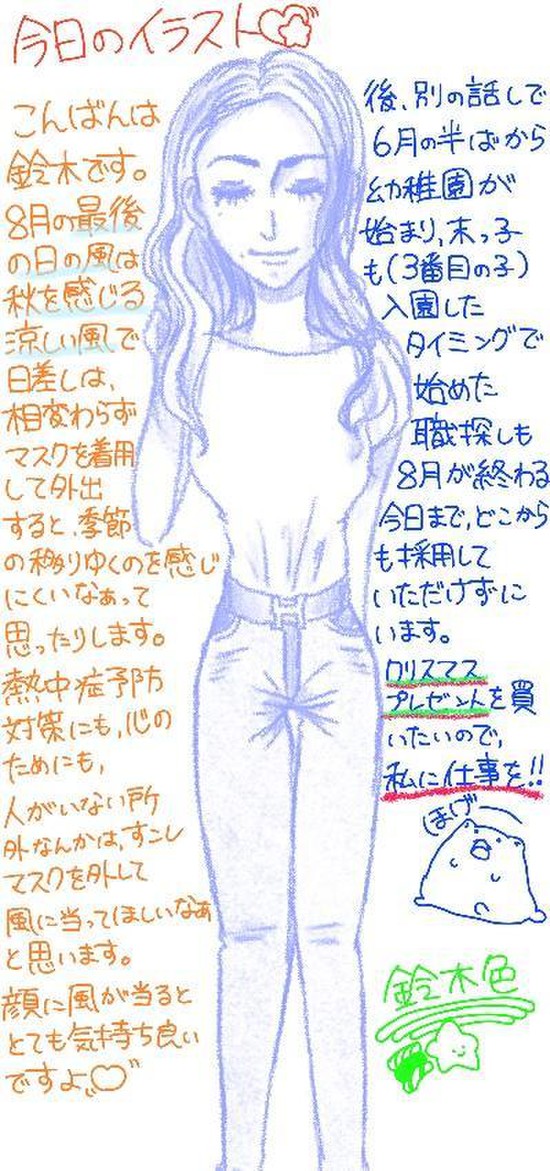 今日のイラスト
こんばんは
鈴木です。
8月の最後
の日の風は
秋を感じる
涼しい風で
日差しは、
相変わらず
マスクを着用
して外出
すると、季節
の移りゆくのを感じ
にくいなぁって
思ったりします。
熱中症予防
対策にも、心の
ためにも、
人がいない所
外なんかは、すこし
マスクを外して
風に当ってほしいなぁ
と思います。
顔に風が当ると
とても気持ち良い
ですよ
後、別の話しで
6月の半ばから
幼稚園が
始まり、末っ子
も(3番目の子)
入園した
タイミングで
始めた
職探しも
8月が終わる
今日まで、どこから
も採用して
いただけずに
います。
クリスマス
プレゼントを買
いたいので、
私に仕事を!!
ほげ
鈴木色